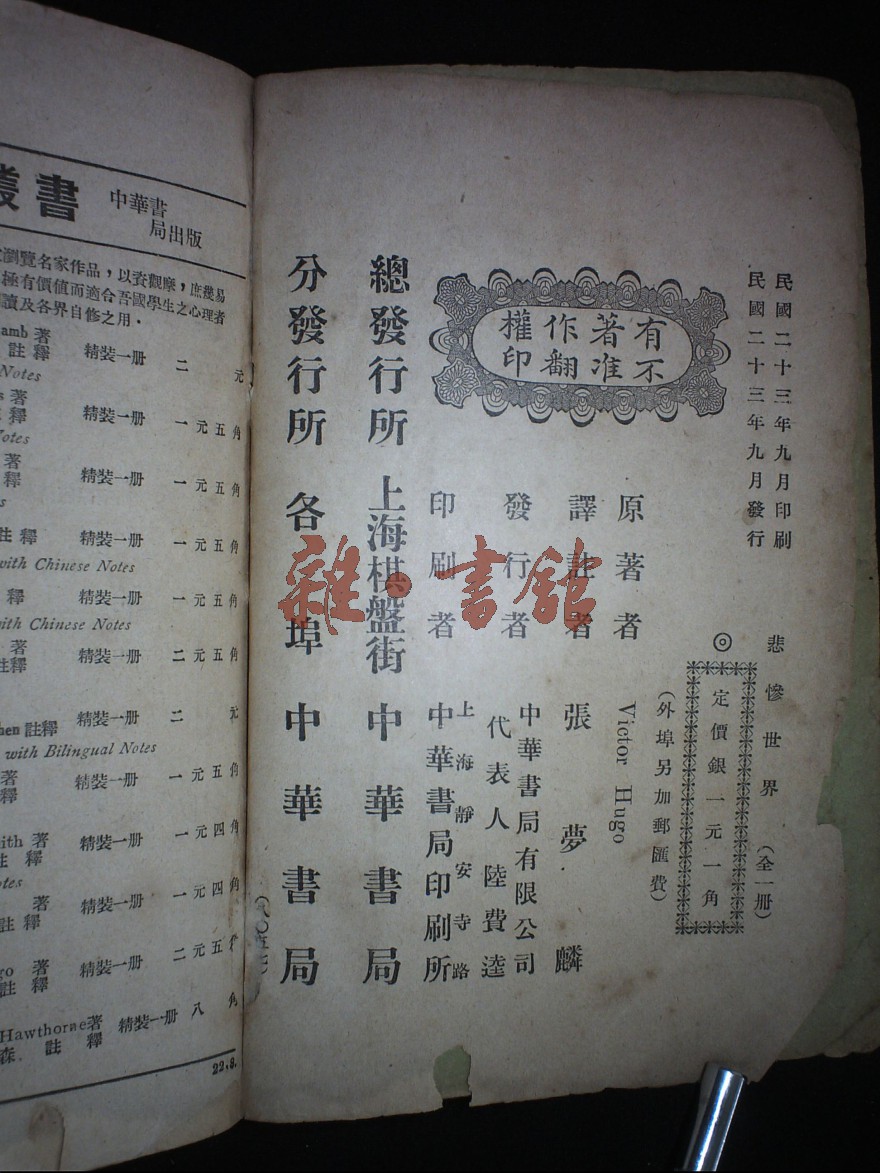 叢書 中華書局出版
瀏覽名家作品，以資觀摩，庶幾易
極有價値而適合吾國學生之心理者
讀及各界自修之用．
amb 著
註釋 精裝一册 二元
Notes
著
釋 精裝一册 一元五角
Notes
著
釋 精裝一册 一元五角
註釋 精裝一册 一元五角
with Chinese Notes
釋 精裝一册 一元五角
with Chinese Notes
著
註釋 精裝一册 二元五角
hen 註釋 精裝一册 二元
with Bilingual Notes
著
釋 精裝一册 一元五角
ith 著
註釋 精裝一册 一元四角
tes
著
註釋 精裝一册 一元四角
go 著
註釋 精裝一册 二元五角
Hawthorne著
森 註釋 精裝一册 八角
22,8.
民國二十三年九月印刷
民國二十三年九月發行
悲慘世界（全一册）
◎定價銀一元一角
（外埠另加郵匯費）
有不
著准
作翻
權印
原著者 Victor Hugo
譯註者 張夢麟
發行者 中華書局有限公司
代表人 陸費逵
印刷者 上海靜安寺路
中華書局印刷所
總發行所 上海棋盤街 中華書局
分發行所 各埠 中華書局
雜·書館